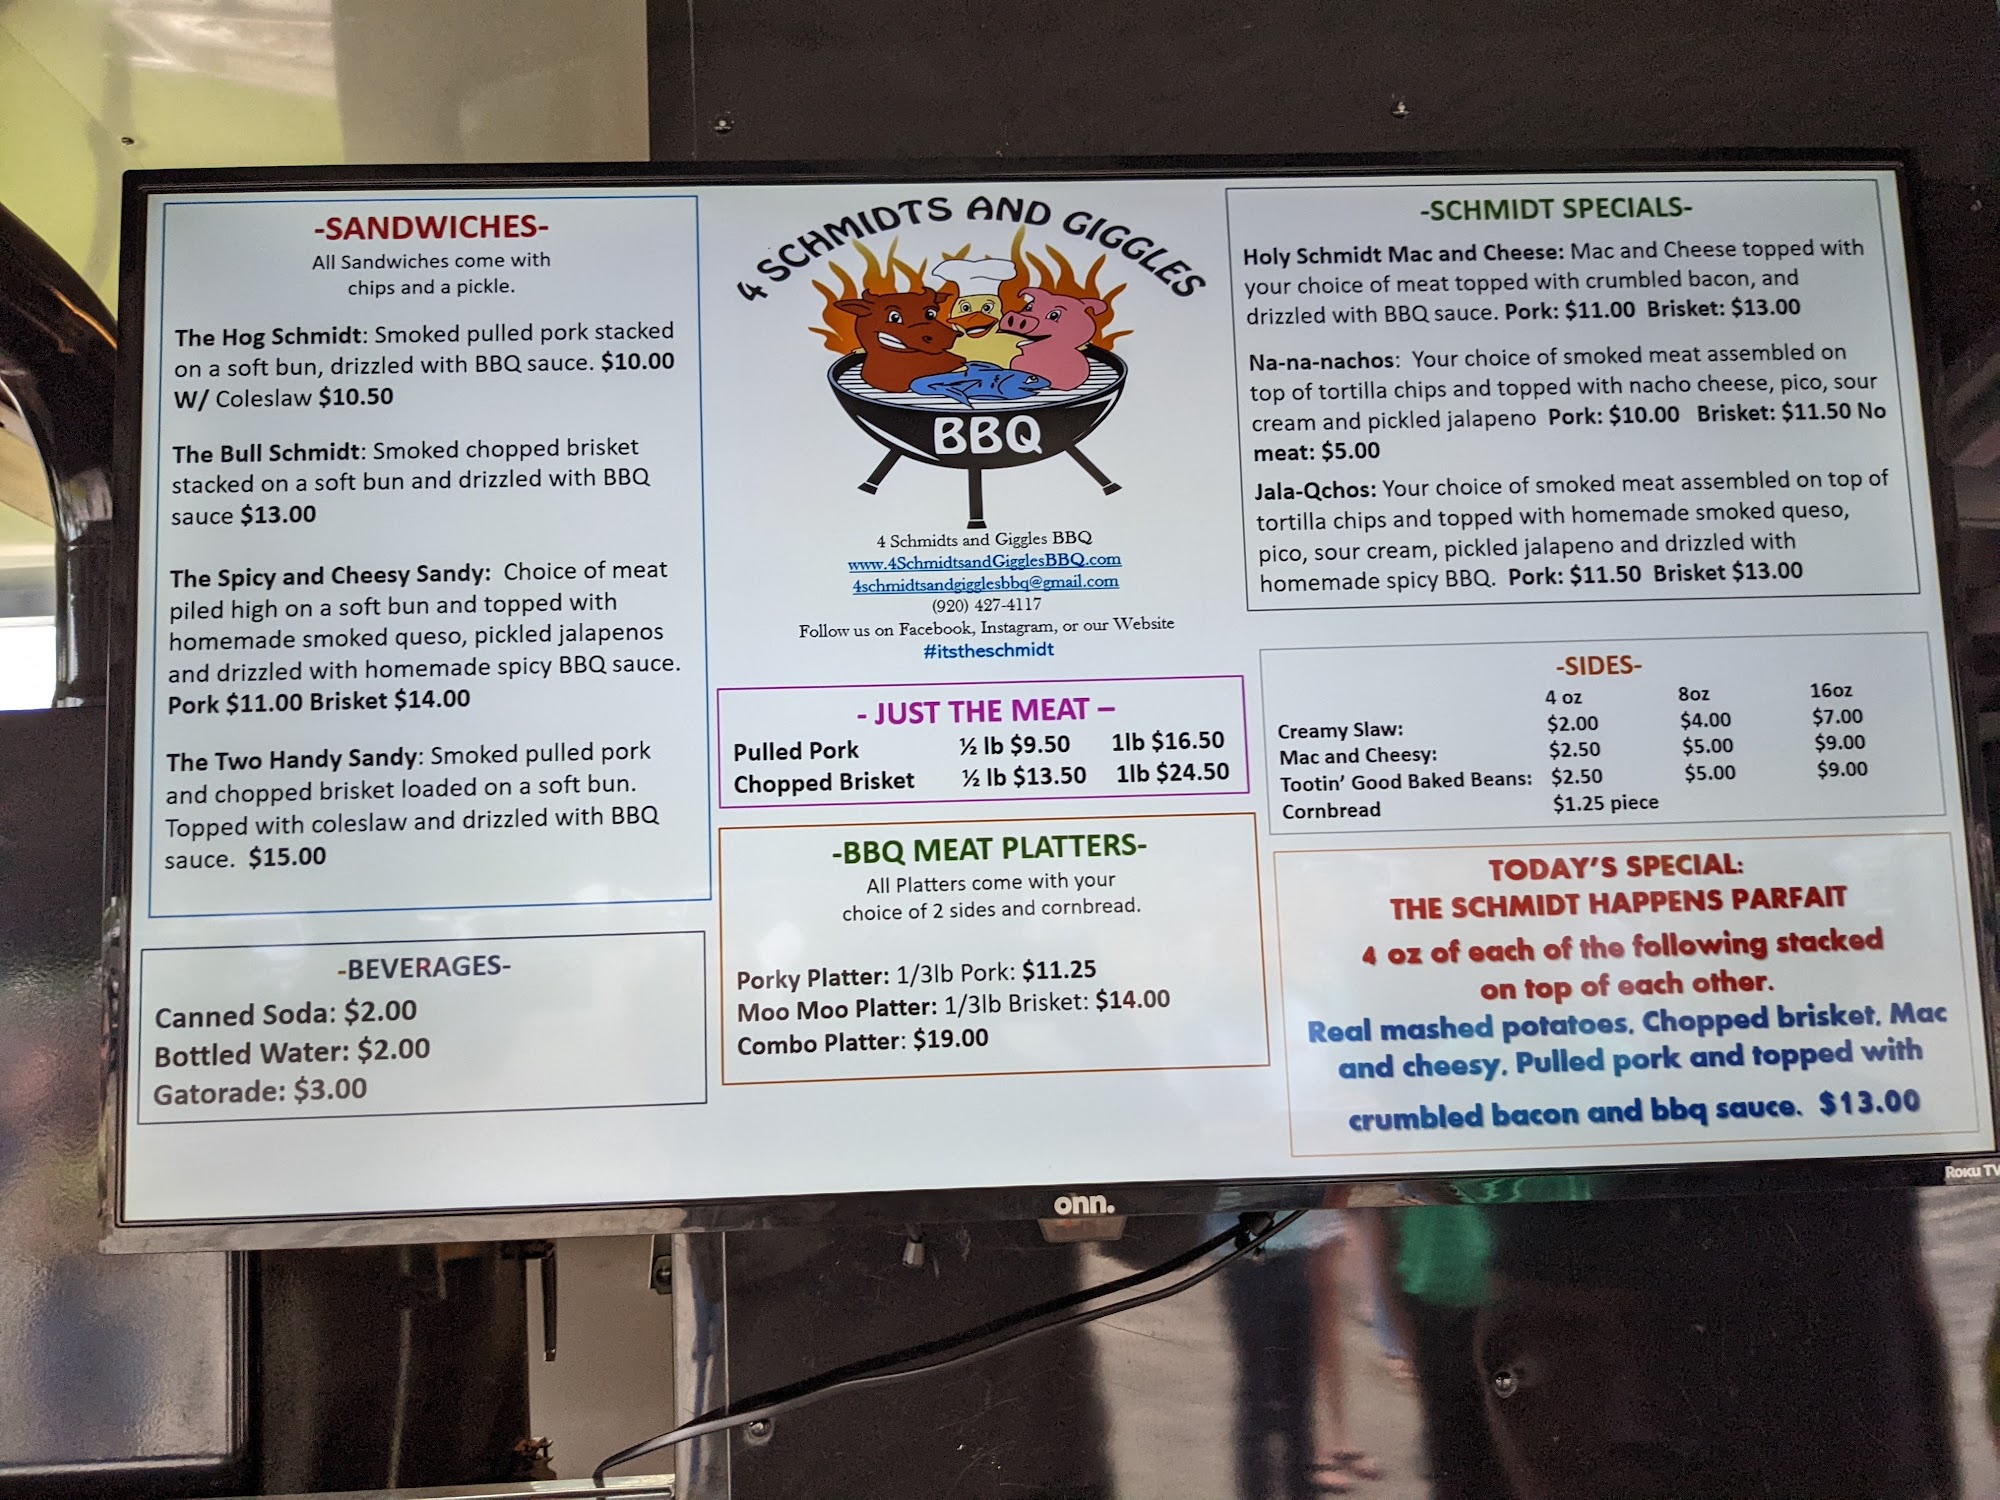 -SANDWICHES-
All Sandwiches come with
chips and a pickle.
The Hog Schmidt: Smoked pulled pork stacked
on a soft bun, drizzled with BBQ sauce. $10.00
W/ Coleslaw $10.50
The Bull Schmidt: Smoked chopped brisket
stacked on a soft bun and drizzled with BBQ
sauce $13.00
The Spicy and Cheesy Sandy: Choice of meat
piled high on a soft bun and topped with
homemade smoked queso, pickled jalapenos
and drizzled with homemade spicy BBQ sauce.
Pork $11.00 Brisket $14.00
The Two Handy Sandy: Smoked pulled pork
and chopped brisket loaded on a soft bun.
Topped with coleslaw and drizzled with BBQ
sauce. $15.00
-BEVERAGES-
Canned Soda: $2.00
Bottled Water: $2.00
Gatorade: $3.00
4 SCHMIDTS AND GIGGLES
BBQ
4 Schmidts and Giggles BBQ
www.4SchmidtsandGigglesBBQ.com
4schmidtsandgigglesbbq@gmail.com
(920) 427-4117
Follow us on Facebook, Instagram, or our Website
#itstheschmidt
- JUST THE MEAT –
Pulled Pork ½ lb $9.50 1lb $16.50
Chopped Brisket ½ lb $13.50 1lb $24.50
-BBQ MEAT PLATTERS-
All Platters come with your
choice of 2 sides and cornbread.
Porky Platter: 1/3lb Pork: $11.25
Moo Moo Platter: 1/3lb Brisket: $14.00
Combo Platter: $19.00
-SCHMIDT SPECIALS-
Holy Schmidt Mac and Cheese: Mac and Cheese topped with
your choice of meat topped with crumbled bacon, and
drizzled with BBQ sauce. Pork: $11.00 Brisket: $13.00
Na-na-nachos: Your choice of smoked meat assembled on
top of tortilla chips and topped with nacho cheese, pico, sour
cream and pickled jalapeno Pork: $10.00 Brisket: $11.50 No
meat: $5.00
Jala-Qchos: Your choice of smoked meat assembled on top of
tortilla chips and topped with homemade smoked queso,
pico, sour cream, pickled jalapeno and drizzled with
homemade spicy BBQ. Pork: $11.50 Brisket $13.00
-SIDES-
4 oz 8oz 16oz
Creamy Slaw: $2.00 $4.00 $7.00
Mac and Cheesy: $2.50 $5.00 $9.00
Tootin' Good Baked Beans: $2.50 $5.00 $9.00
Cornbread $1.25 piece
TODAY'S SPECIAL:
THE SCHMIDT HAPPENS PARFAIT
4 oz of each of the following stacked
on top of each other.
Real mashed potatoes, Chopped brisket, Mac
and cheesy, Pulled pork and topped with
crumbled bacon and bbq sauce. $13.00
onn.
Roku TV